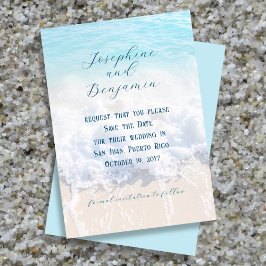 Josephine
and
Benjamin
request that you please
Save the Date
for their wedding in
San Juan, Puerto Rico
October 19, 2017
formal invitation to follow